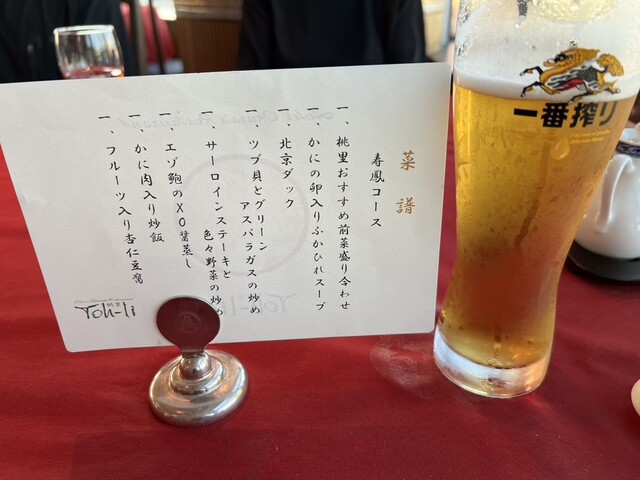 菜譜
寿鳳コース
一、桃里おすすめ前菜盛り合わせ
一、かにの卵入りふかひれスープ
一、北京ダック
一、ツブ貝とグリーン
アスパラガスの炒め
一、サーロインステーキと
色々野菜の炒め
一、エゾ鮑のXO醤蒸し
一、かに肉入り炒飯
一、フルーツ入り杏仁豆腐
桃里
Toh-li
一番搾り